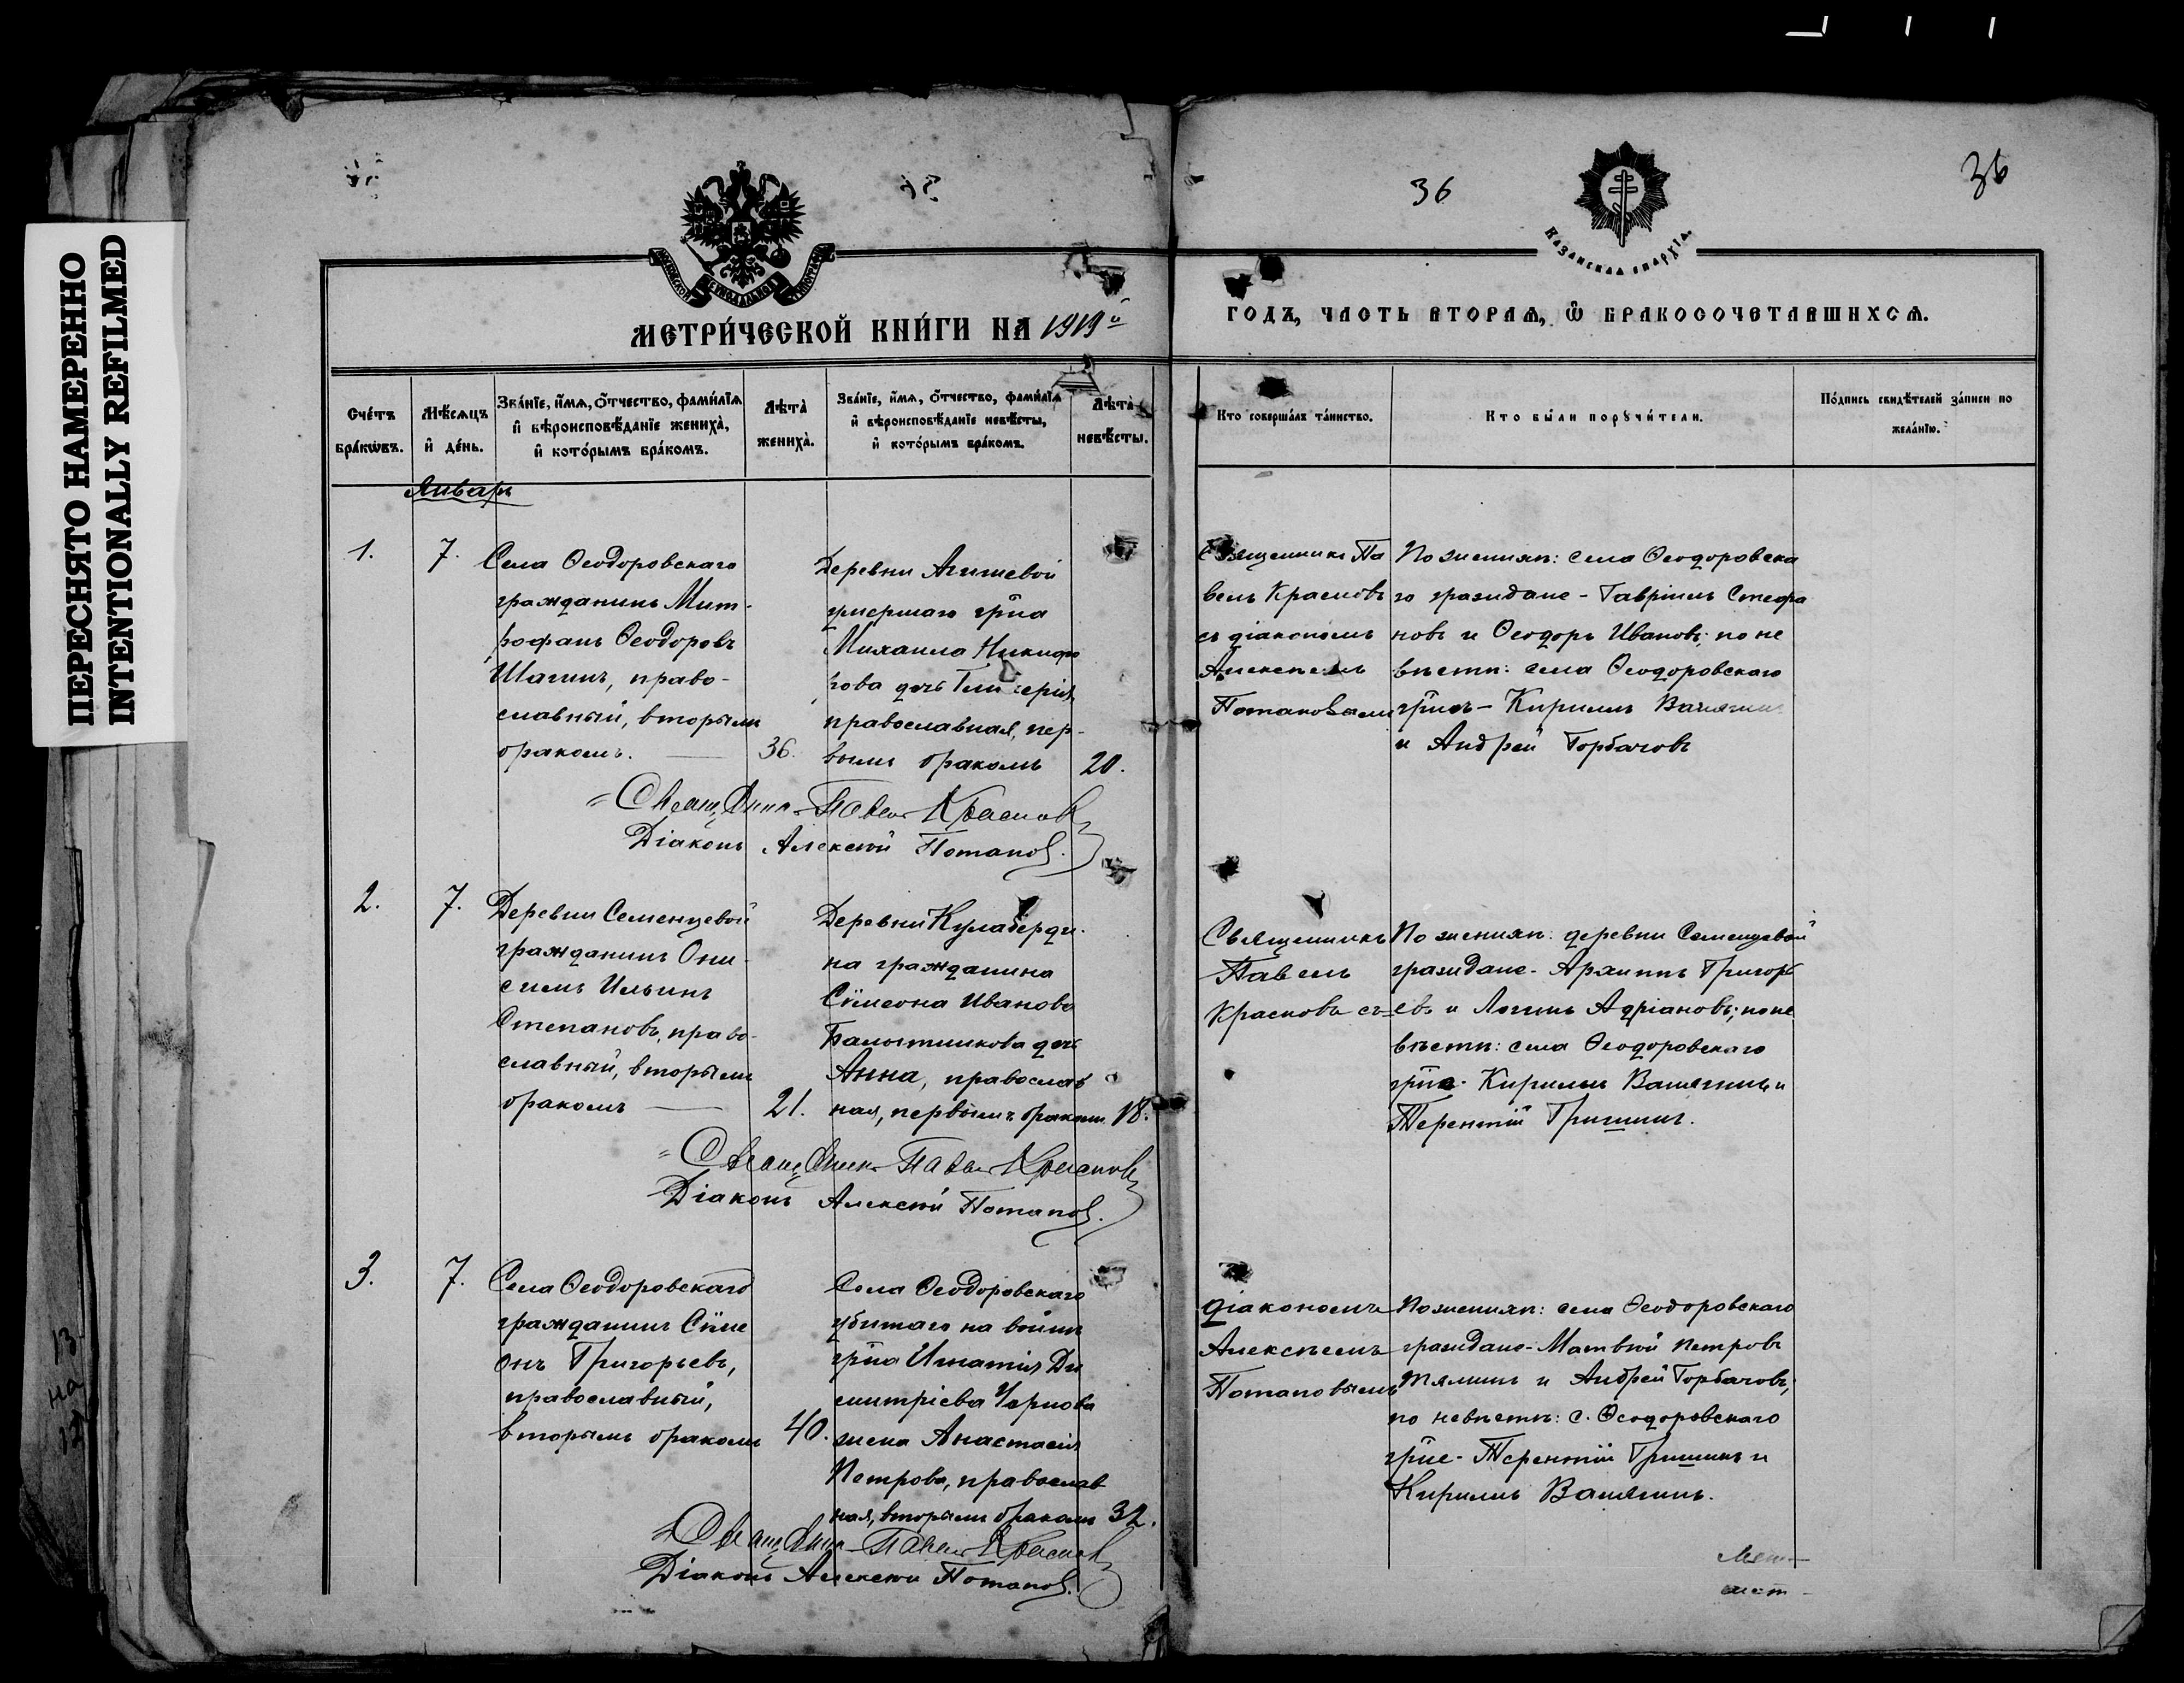 ПЕРЕСНЯТО НАМЕРЕННО
INTENTIONALLY REFILMED
36
36
КАЗАНСКАЯ ЕПАРХІЯ.
МЕТРИ́ЧЕСКОЙ КНИ́ГИ НА 1919й
ГОДЪ, ЧАСТЬ ВТОРАЯ, Ѡ БРАКОСОЧЕТАВШИХСЯ.
Сче́тъ бра́кѡвъ.
Мѣ́сяцъ и де́нь.
Зва́нїе, и́мя, о́тчество, фами́лїя
и вѣроисповѣ́данїе жениха̀,
и кото́рымъ бра́комъ.
Лѣта̀ жениха̀.
Зва́нїе, и́мя, о́тчество, фами́лїя
и вѣроисповѣ́данїе невѣ́сты,
и кото́рымъ бра́комъ.
Лѣта̀ невѣ́сты.
Кто соверша́лъ та́инство.
Кто бы́ли порꙋчи́тели.
По́дпись свидѣ́телей за́писи по
жела́нїю.
Январь
1.
7.
Села Ѳеодоровскаго
гражданинъ Мит-
рофанъ Ѳеодоровъ
Шагинъ, право-
славный, вторымъ
бракомъ.
36.
Деревни Агишевой
умершаго гр̃на
Михаила Никифо
рова дочь
православная, пер-
вымъ бракомъ
20.
Священникъ Па
велъ Красновъ
съ діакономъ
Алексѣемъ
Потаповымъ
По женихѣ: села Ѳеодоровска
го граждане - Гавріилъ Стефа
новъ и Ѳеодоръ Ивановъ; по не
вѣстѣ: села Ѳеодоровскаго
гр̃не - Кириллъ
и Андрей Горбачовъ
Священникъ Павелъ Красновъ
Діаконъ Алексѣй Потаповъ.
2.
7.
Деревни Семенцевой
гражданинъ Они-
симъ Ильинъ
Степановъ, право-
славный, вторымъ
бракомъ
21.
Деревни Кулаберди-
на гражданина
Сѵмеона Иванова
дочь
Анна, православ
ная, первымъ бракомъ.
18.
Священникъ
Павелъ
Красновъ съ
По женихѣ: деревни Семенцевой
граждане - Архиппъ Григорь
евъ и Логинъ Адріановъ; по не
вѣстѣ: села Ѳеодоровскаго
гр̃не - Кириллъ Вашагинъ и
Терентій Гришинъ.
Священникъ Павелъ Красновъ
Діаконъ Алексѣй Потаповъ.
3.
7.
Села Ѳеодоровскаго
гражданинъ Сѵме
онъ Григорьевъ,
православный,
вторымъ бракомъ
40.
Села Ѳеодоровскаго
убитаго на войнѣ
гр̃на Игнатія Ди
митріева Чернова
жена Анастасія
Петрова, православ
ная, вторымъ бракомъ
32.
діакономъ
Алексѣемъ
Потаповымъ
По женихѣ: села Ѳеодоровскаго
граждане - Матвѣй Петровъ
Тяминъ и Андрей Горбачовъ;
по невѣстѣ: с. Ѳеодоровскаго
гр̃не - Терентій Гришинъ и
Кириллъ Вашагинъ.
Священникъ Павелъ Красновъ
Діаконъ Алексѣй Потаповъ.
13
на
12